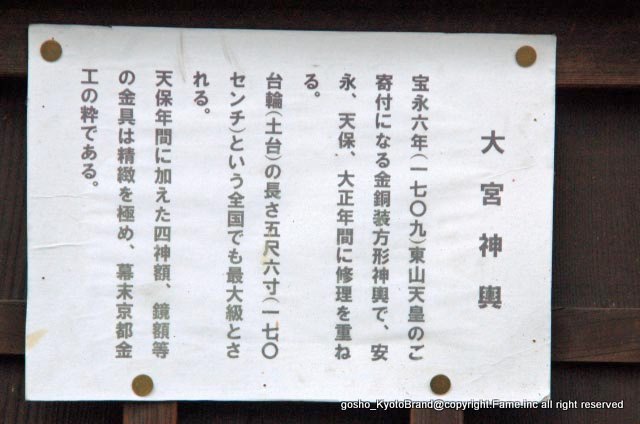 大宮神輿
宝永六年(一七〇九)東山天皇のご
寄付になる金銅装方形神輿で、安
永、天保、大正年間に修理を重ね
る。
台輪(土台)の長さ五尺六寸(一七〇
センチ)という全国でも最大級とさ
れる。
天保年間に加えた四神額、鏡額等
の金具は精緻を極め、幕末京都金
工の粋である。
gosho_KyotoBrand@copyright.Fame.inc all right reserved